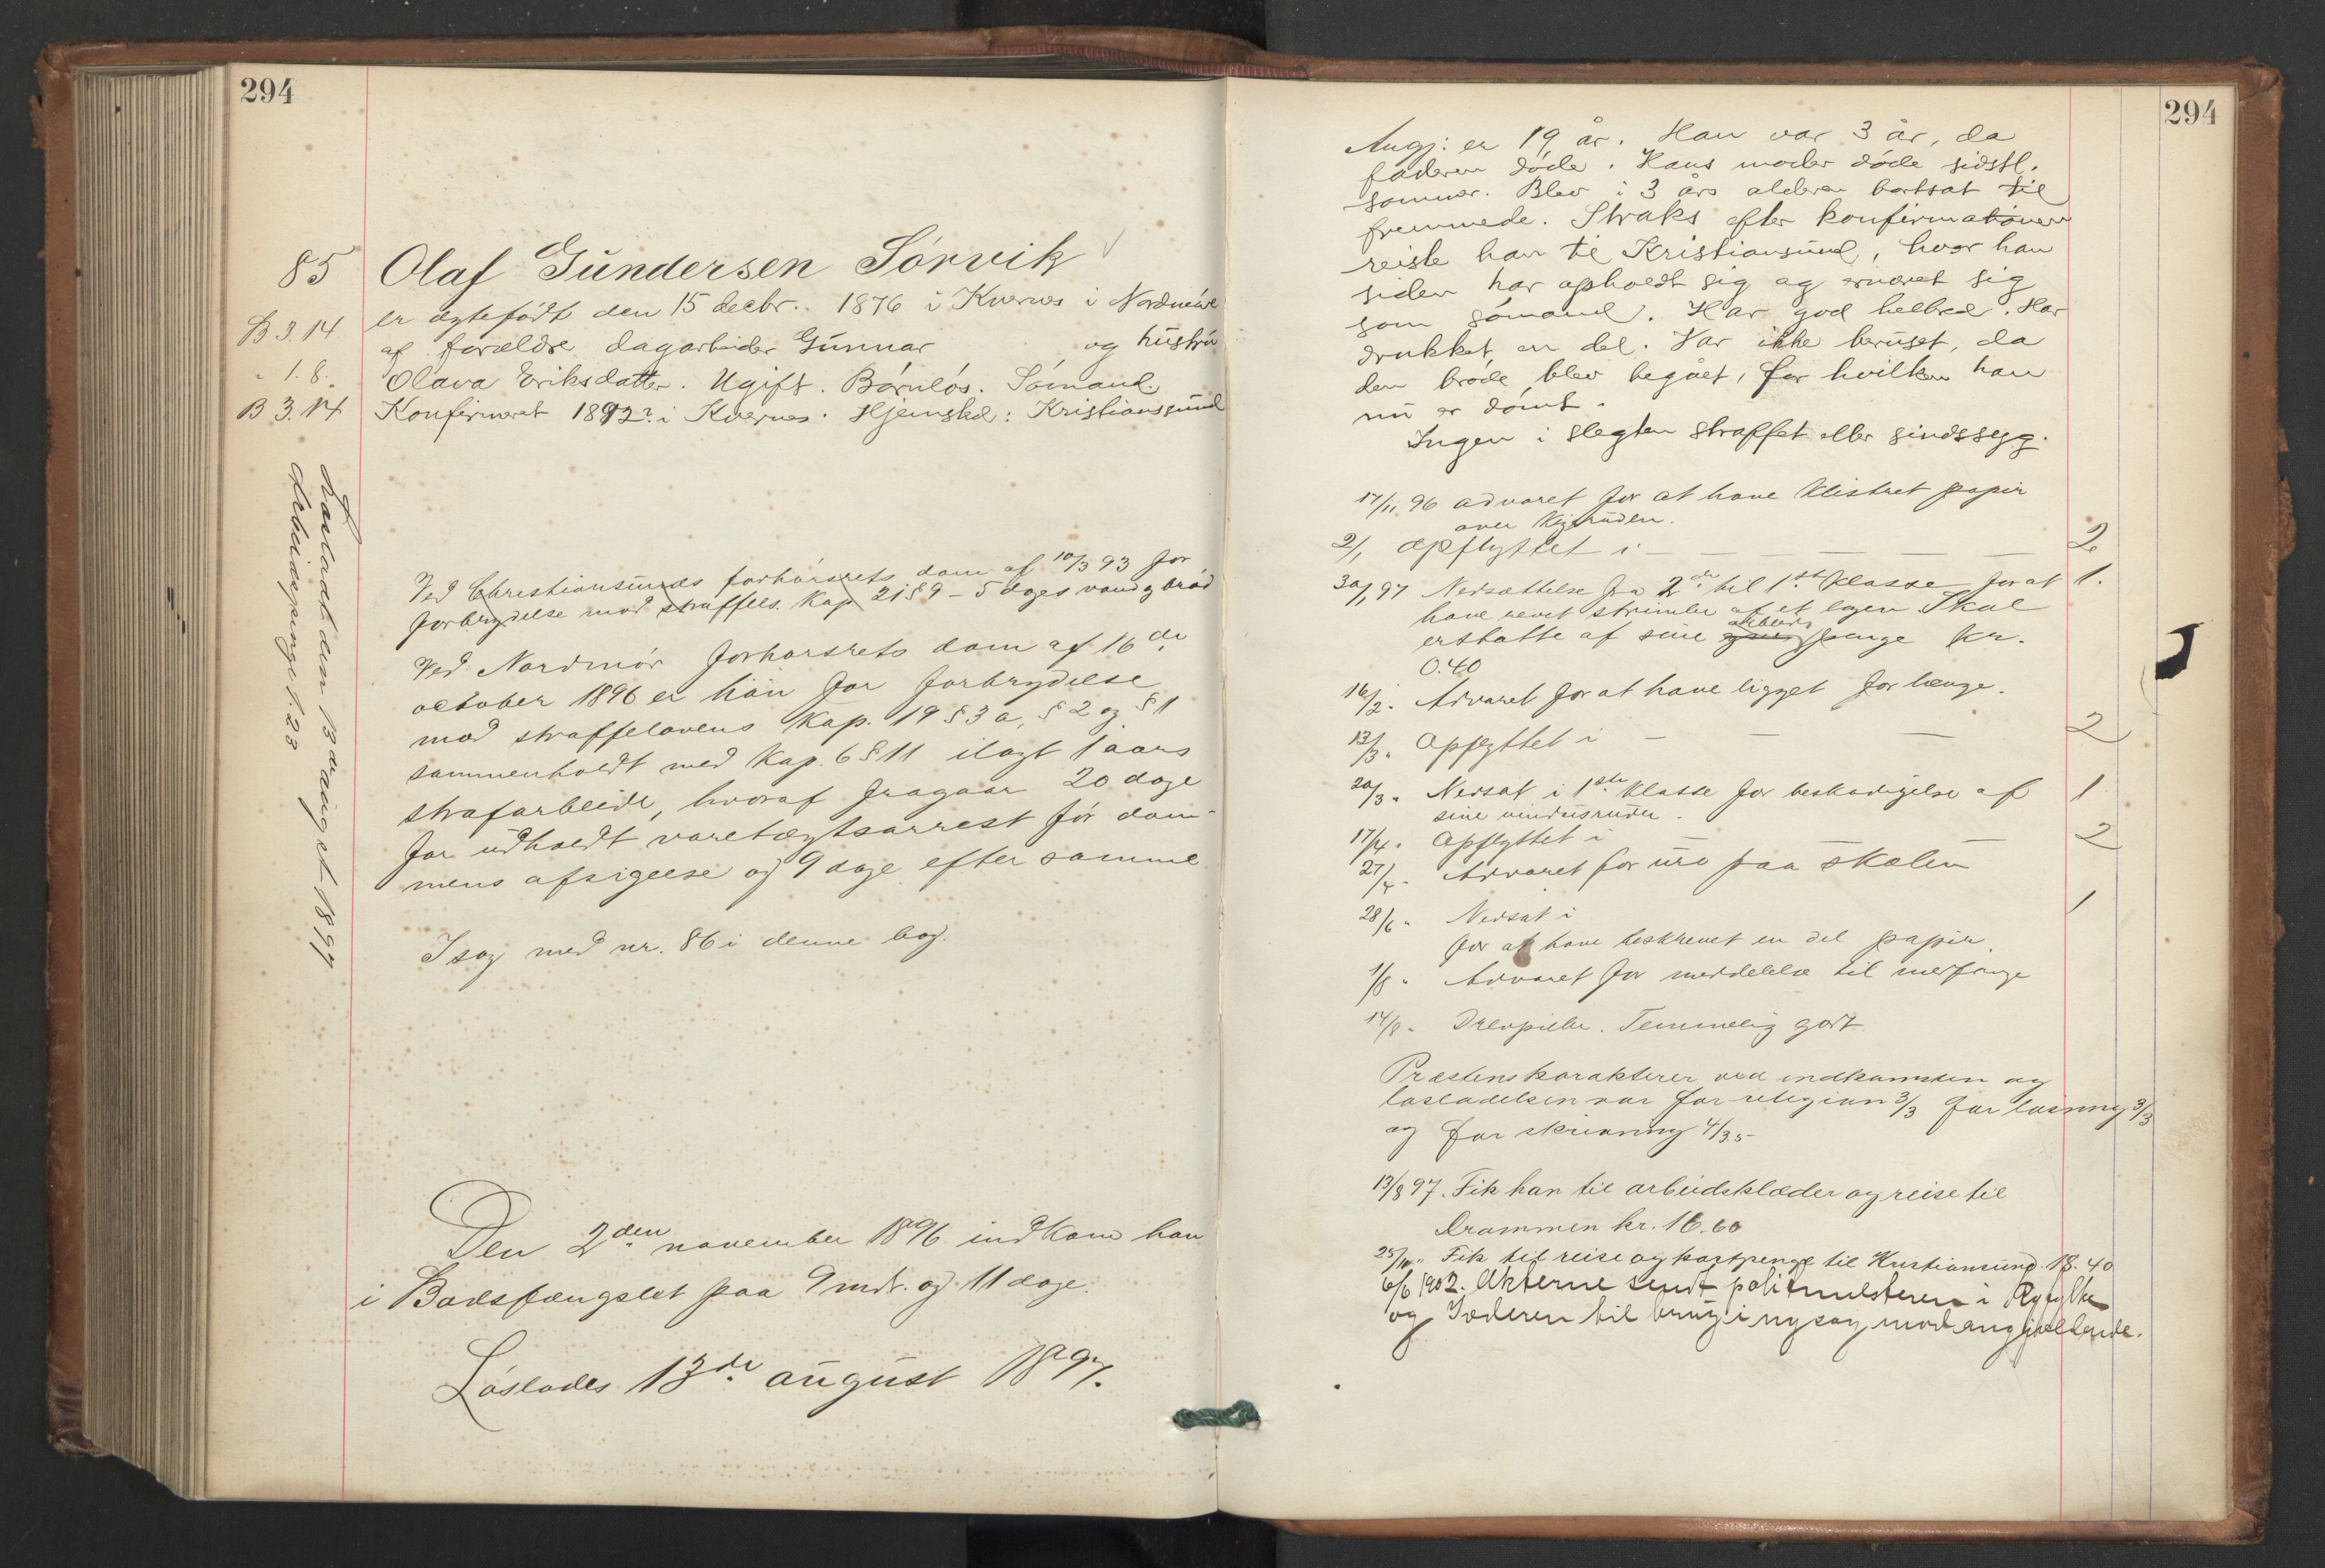 294
85 Olaf Gundersen Sörvik
er ægtefödt den 15 decbr. 1876 i Kvernes i Nordmöre
B 3.14 af forældre dagarbeider Gunnar og hustru
" 1.8. Olava Eriksdatter. Ugift. Barnlös. Sömand.
B 3.14 Konfirmeret 1892? i Kvernes. Hjemsted: Kristianssund
Lösladt den 13de august 1897
Arbeidspenge 1.23
Ved Christiansunds forhörsrets dom af 10/3 93 for
forbrydelse mod straffels. Kap 21 § 9 – 5 dages vand og bröd
Ved Nordmör forhörsrets dom af 16de
october 1896 er han for forbrydelse
mod straffelovens Kap. 19 § 3 a, § 2 og § 1
sammenholdt med Kap. 6 § 11 ilagt 1 aars
strafarbeide, hvoraf fragaar 20 dage
for udholdt varetægtsarrest för dom-
mens afsigelse og 9 dage efter samme
I sag med nr. 86 i denne bog.
Den 2den november 1896 indkom han
i Bodsfængslet paa 9 mdr. og 11 dage.
Löslades 13de august 1897.
294
Angj: er 19 år. Han var 3 år, da
faderen döde. Hans moder döde sidstl.
sommer. Blev i 3 års alderen bortsat til
fremmede. Straks efter konfirmationen
reiste han til Kristiansund, hvor han
siden har opholdt sig og ernæret sig
som sömand. Har god helbred. Har
drukket en del. Var ikke beruset, da
den bröde blev begået, for hvilken han
nu er dömt.
Ingen i slegten straffet eller sindssyg.
17/11 96 advaret for at have klistret papir
over Kigruden.
2/1 Opflyttet i — — — — — 2.
30/1 97 Nedsættelse fra 2den til 1ste Klasse for at 1.
have revet strimler af et lagen Skal
erstatte af sine arbeidspenge kr.
0.40
16/2 " Advaret for at have ligget for længe.
13/3 " Opflyttet i — — — 2
20/3 " Nedsat i 1ste Klasse for beskadigelse af 1
sine vindusruder.
17/4 " Opflyttet i — — 2
27/4 " Advaret for uro paa skolen
28/6 " Nedsat i 1
for at have beskrevet en del papir.
1/8 " Advaret for meddelelse til medfange
14/8 " Drevpiller. Temmelig godt.
Præstens karakterer ved indkomsten og
lösladelsen var for religion 3/3 for læsning 3/3
og for skrivning 4/3.5
13/8 97. Fik han til arbeidsklæder og reise til
Drammen kr. 16.60
25/10 " Fik til reise og kostpenge til Kristiansund. 18.40
6/6 1902. Akterne sendt politmesteren i Ryfylke
og Jæderen til brug i ny sag mod angjældende.